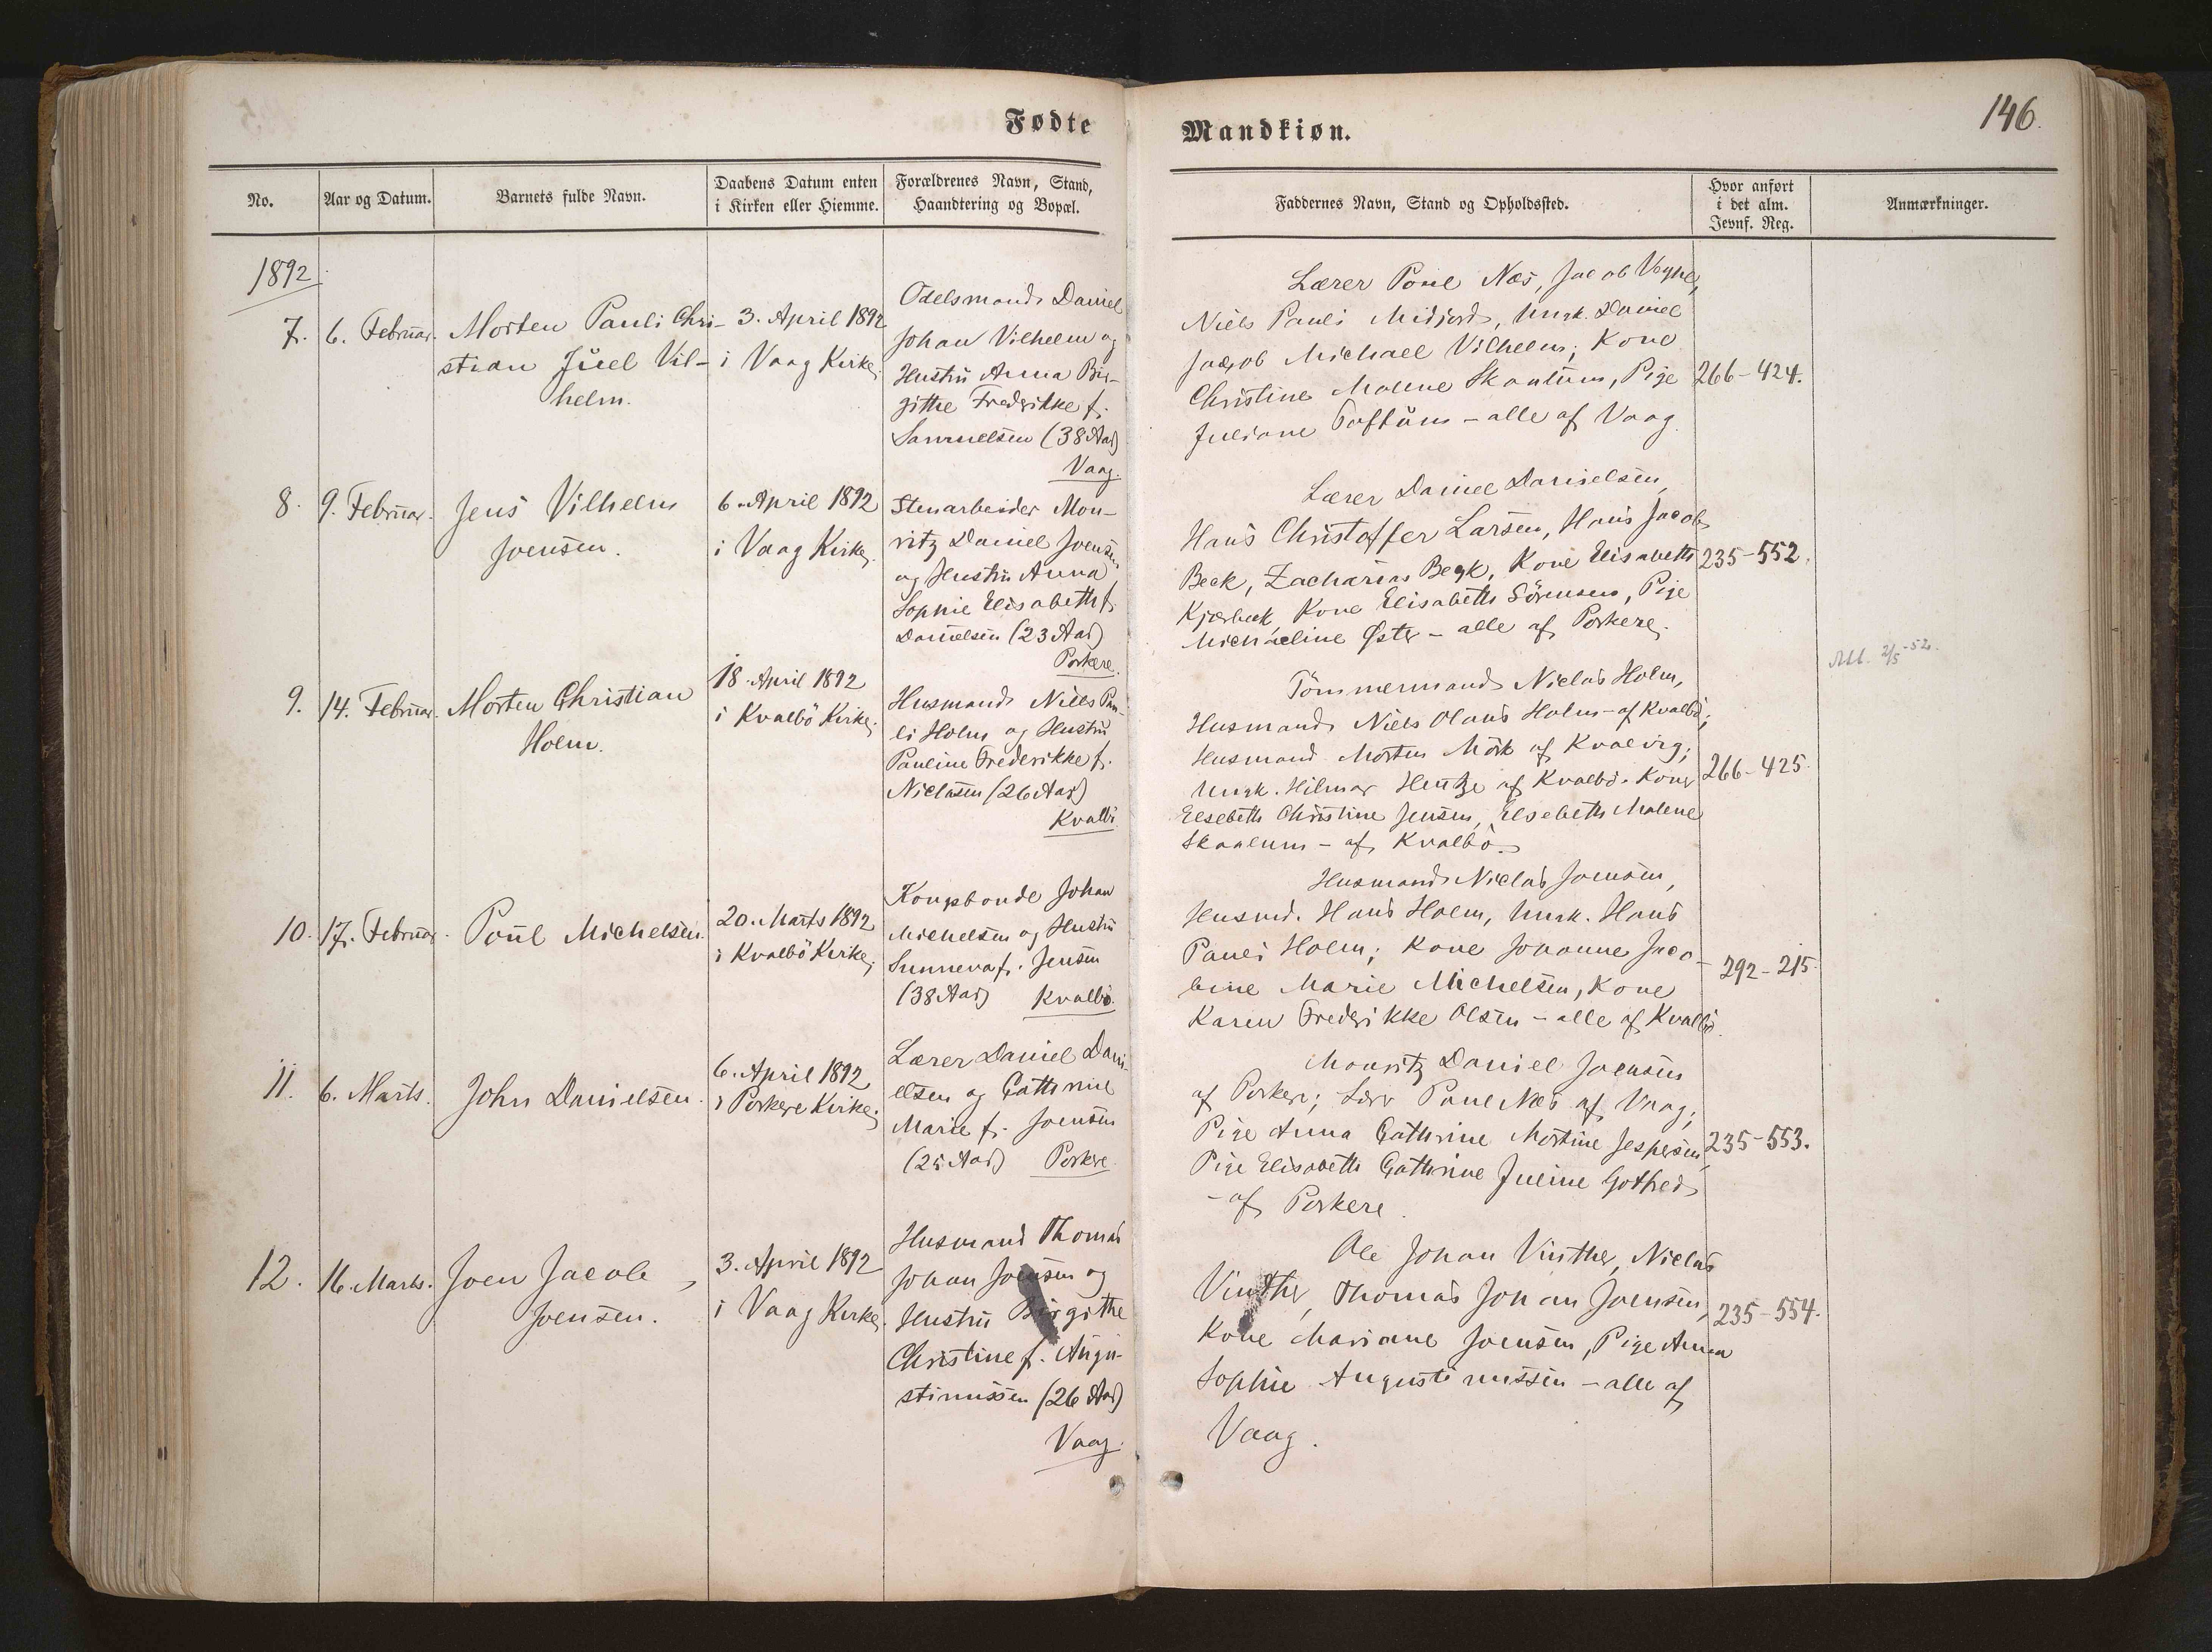 Fødte
Mandkiøn.
146.
No.
Aar og Datum.
Barnets fulde Navn.
Daabens Datum enten
i Kirken eller Hiemme.
Forældrenes Navn, Stand,
Haandtering og Bopæl.
Faddernes Navn, Stand og Opholdssted.
Hvor anført
i det alm.
Jevnf. Reg.
Anmærkninger.
1892
7.
6. Februar.
Morten Pauli Chri-
stian Juel Vil-
helm.
3. April 1892
i Vaag Kirke.
Odelsmand Daniel
Johan Vilhelm og
Hustru Anna Bir-
githe Frederikke f.
Samuelsen (38 Aar)
Vaag.
Lærer Poul Næs, Jacob Vagner,
Niels Pauli Midjord, Ungk. Daniel
Jacob Michael Vilhelm; Kone
Christine Malene Skaalum, Pige
Juliane Toftum - alle af Vaag.
266-424.
8.
9. Februar.
Jens Vilhelm
Joensen.
6. April 1892
i Vaag Kirke.
Stenarbeider Mou-
ritz Daniel Joensen
og Hustru Anna
Sophie Elisabeth f.
Danielsen (23 Aar)
Porkere.
Lærer Daniel Danielsen,
Hans Christoffer Larsen, Hans Jacob
Beck, Zacharias Beck, Kone Elisabeth
Kjærbeck, Kone Elisabeth Sörensen, Pige
Michaeline Øster - alle af Porkere.
235-552.
9.
14. Februar.
Morten Christian
Holm.
18. April 1892
i Kvalbö Kirke.
Husmand Niels Pau-
li Holm og Hustru
Pauline Frederikke f.
Niclasen (26 Aar)
Kvalbö
Tömmermand Niclas Holm,
Husmand Niels Olaus Holm - af Kvalbö;
Husmand Morten Mörk af Kvalvig;
Ungk. Hilmar Heutze af Kvalbö. Kone
Elsebeth Christine Jensen, Elsebeth Malene
Skaalum - af Kvalbö.
266-425.
2/5-52.
10.
17. Februar.
Poul Michelsen.
20. Marts 1892
i Kvalbö Kirke.
Kongsbonde Johan
Michelsen og Hustru
Sunneva f. Jensen
(38 Aar) Kvalbö.
Husmand Niclas Joensen,
Husmd. Hans Holm, Ungk. Hans
Pauli Holm; Kone Johanne Jaco-
bine Marie Michelsen, Kone
Karen Frederikke Olsen - alle af Kvalbö.
292-215.
11.
6. Marts.
John Danielsen.
6. April 1892
i Porkere Kirke.
Lærer Daniel Dani-
elsen og Cathrine
Marie f. Joensen
(25 Aar) Porkere.
Mouritz Daniel Joensen
af Porkere; Lærer Poul Næs af Vaag;
Pige Anna Cathrine Mortine Jespersen,
Pige Elisabeth Cathrine Juline Gotfred
- af Porkere.
235-553.
12.
16. Marts.
Joen Jacob
Joensen.
3. April 1892
i Vaag Kirke.
Husmand Thomas
Johan Joensen og
Hustru Birgithe
Christine f. Augu-
stinussen (26 Aar)
Vaag.
Ole Johan Vinther, Niclas
Vinther, Thomas Johan Joensen,
Kone Mariane Joensen, Pige Anna
Sophie Augustinussen - alle af
Vaag.
235-554.